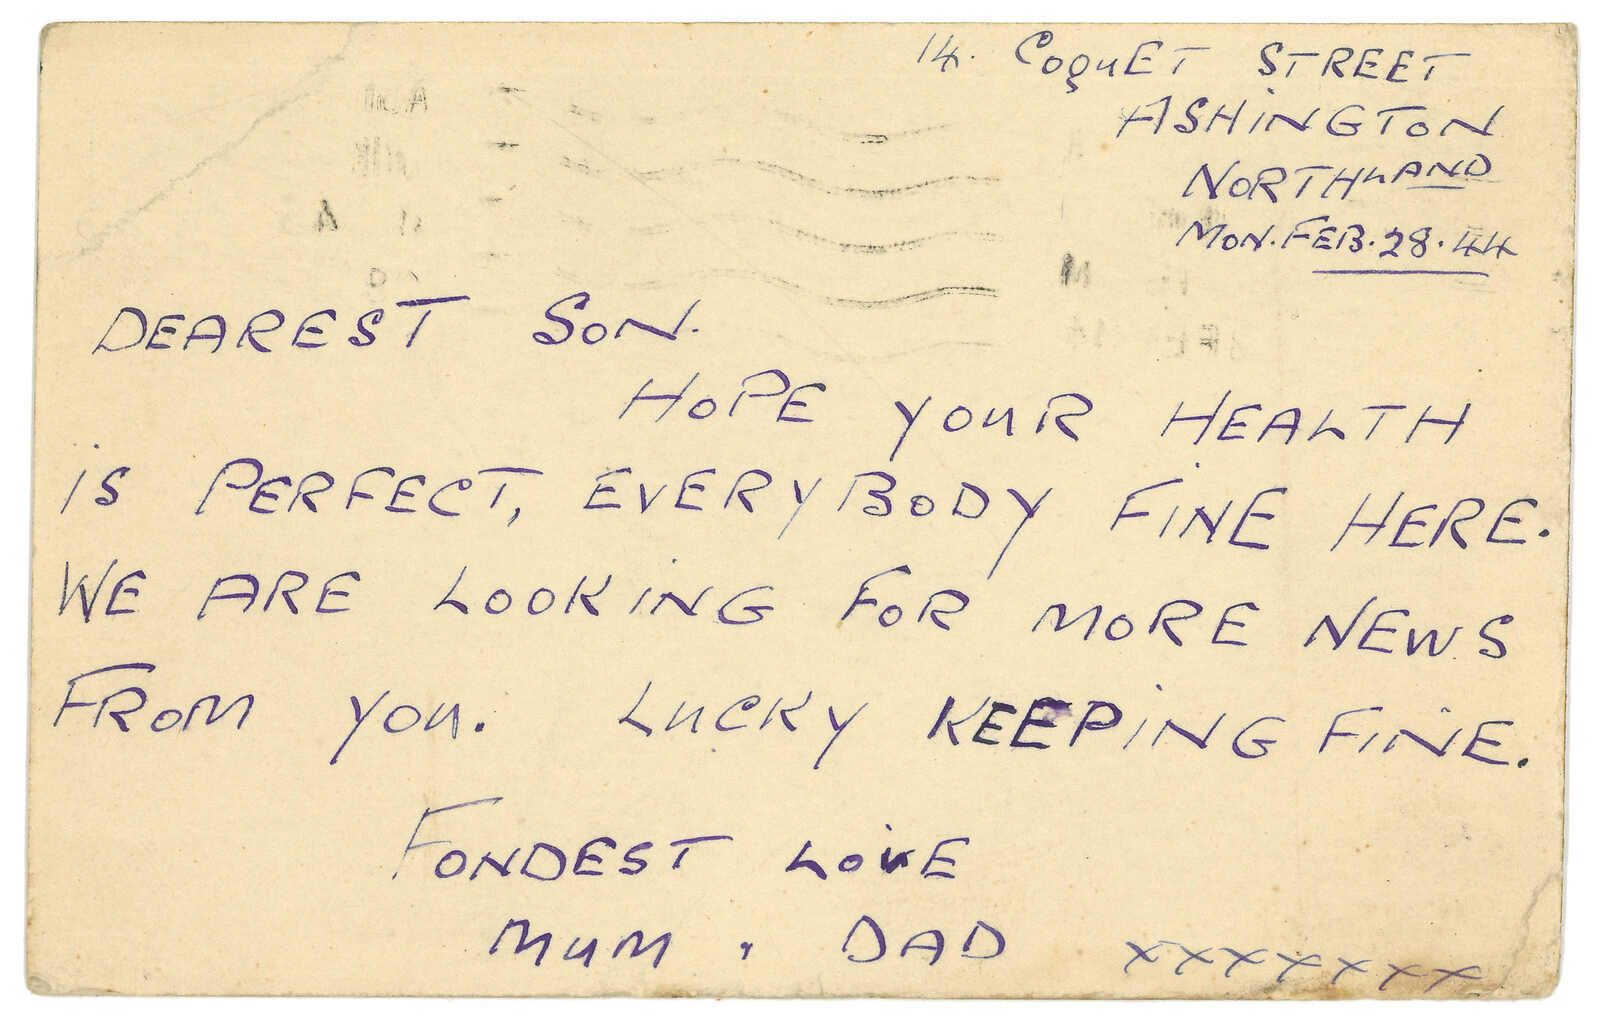 14. COQUET STREET
ASHINGTON
NORTHLAND
MON. FEB. 28. 44
DEAREST SON.
HOPE YOUR HEALTH
IS PERFECT, EVERYBODY FINE HERE.
WE ARE LOOKING FOR MORE NEWS
FROM YOU. LUCKY KEEPING FINE.
FONDEST LOVE
MUM . DAD xxxxxxx